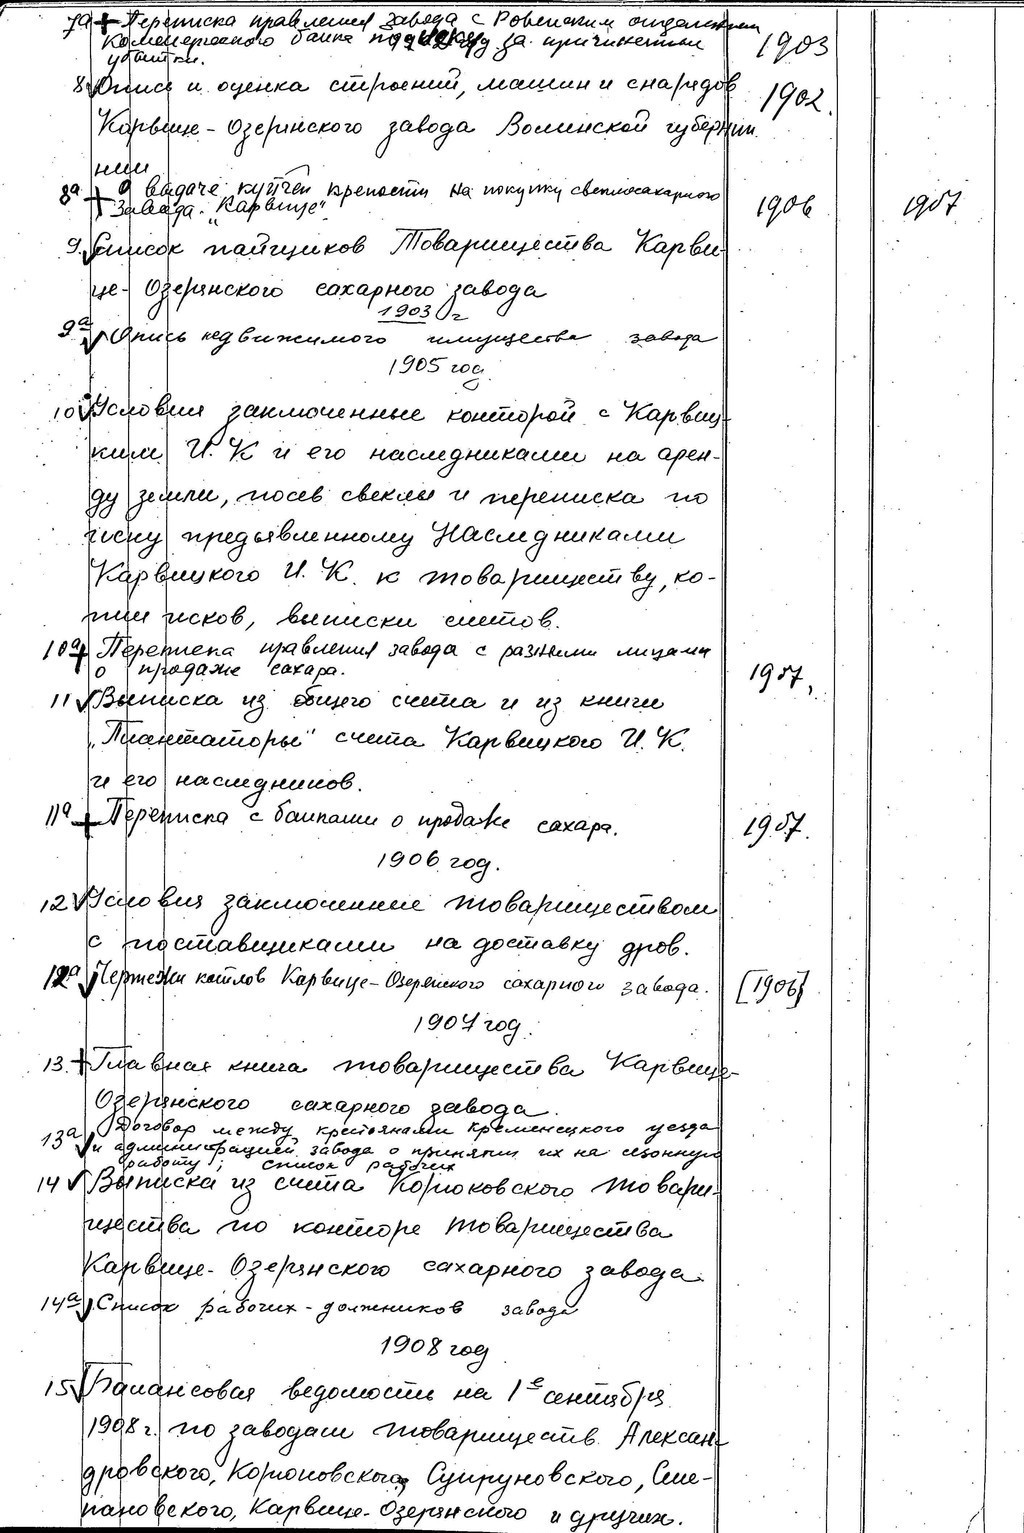 7а Переписка правления завода с Ровенским отделением
Коммерческого банка по иску за причиненные 1903
убытки.
8. Опись и оценка строений, машин и снарядов 1902.
Карвице-Озерянского завода Волынской губернии
нии
8а О выдаче купчей крепости на покупку свеклосахарного
завода "Карвице" 1906 1907
9. Список пайщиков Товарищества Карви-
це-Озерянского сахарного завода
1903 г
9а Опись недвижимого имущества завода
1905 год
10 Условия заключенные конторой с Карвиц-
ким И.К и его наследниками на арен-
ду земли, посев свеклы и переписка по
иску предъявленному Наследниками
Карвицкого И.К. к товариществу, ко-
пии исков, выписки счетов.
10а Переписка правления завода с разными лицами
о продаже сахара. 1907.
11 Выписка из общего счета и из книги
„Плантаторы" счета Карвицкого И.К.
и его наследников.
11а Переписка с банками о продаже сахара. 1907.
1906 год.
12 Условия заключенные товариществом
с поставщиками на доставку дров.
12а Чертежи котлов Карвице-Озерянского сахарного завода. [1906]
1907 год.
13. Главная книга товарищества Карвице-
Озерянского сахарного завода.
13а Договор между крестьянами Кременецкого уезда
и администрацией завода о принятии их на сезонную
работу; список рабочих
14 Выписка из счета Корюковского товари-
щества по конторе товарищества
Карвице-Озерянского сахарного завода
14а Список рабочих-должников завода
1908 год
15 Балансовая ведомость на 1е сентября
1908 г. по заводам товариществ Алексан-
дровского, Корюковского, Супруновского, Сте-
пановского, Карвице-Озерянского и других.